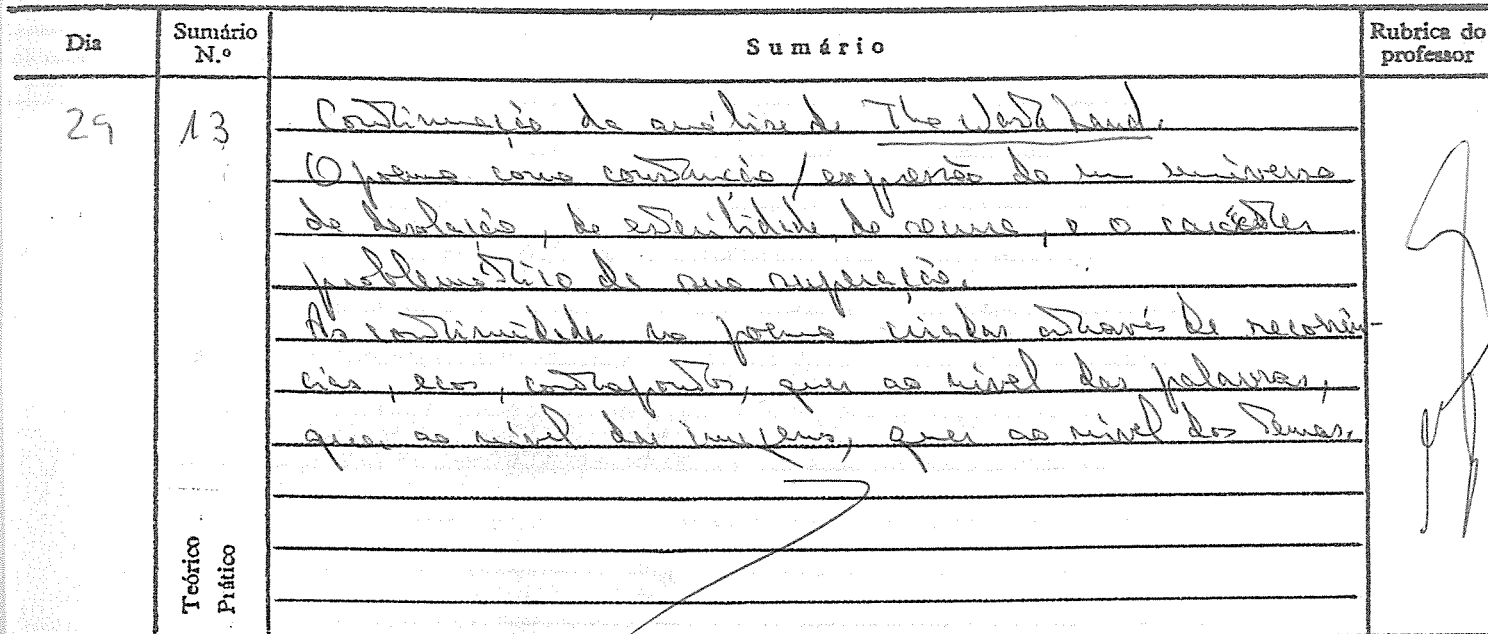 Dia
Sumário N.º
Sumário
Rubrica do professor
29
13
Continuação da análise de The Waste Land.
O poema como / expressão de um universo
de desolação, de esterilidade, de, e o carácter
problemático da sua superação.
As continuidades no poema criadas através de recorrên-
cias, ecos, contrapontos, quer ao nível das palavras,
quer ao nível das imagens, quer ao nível dos temas.
Teórico
Prático